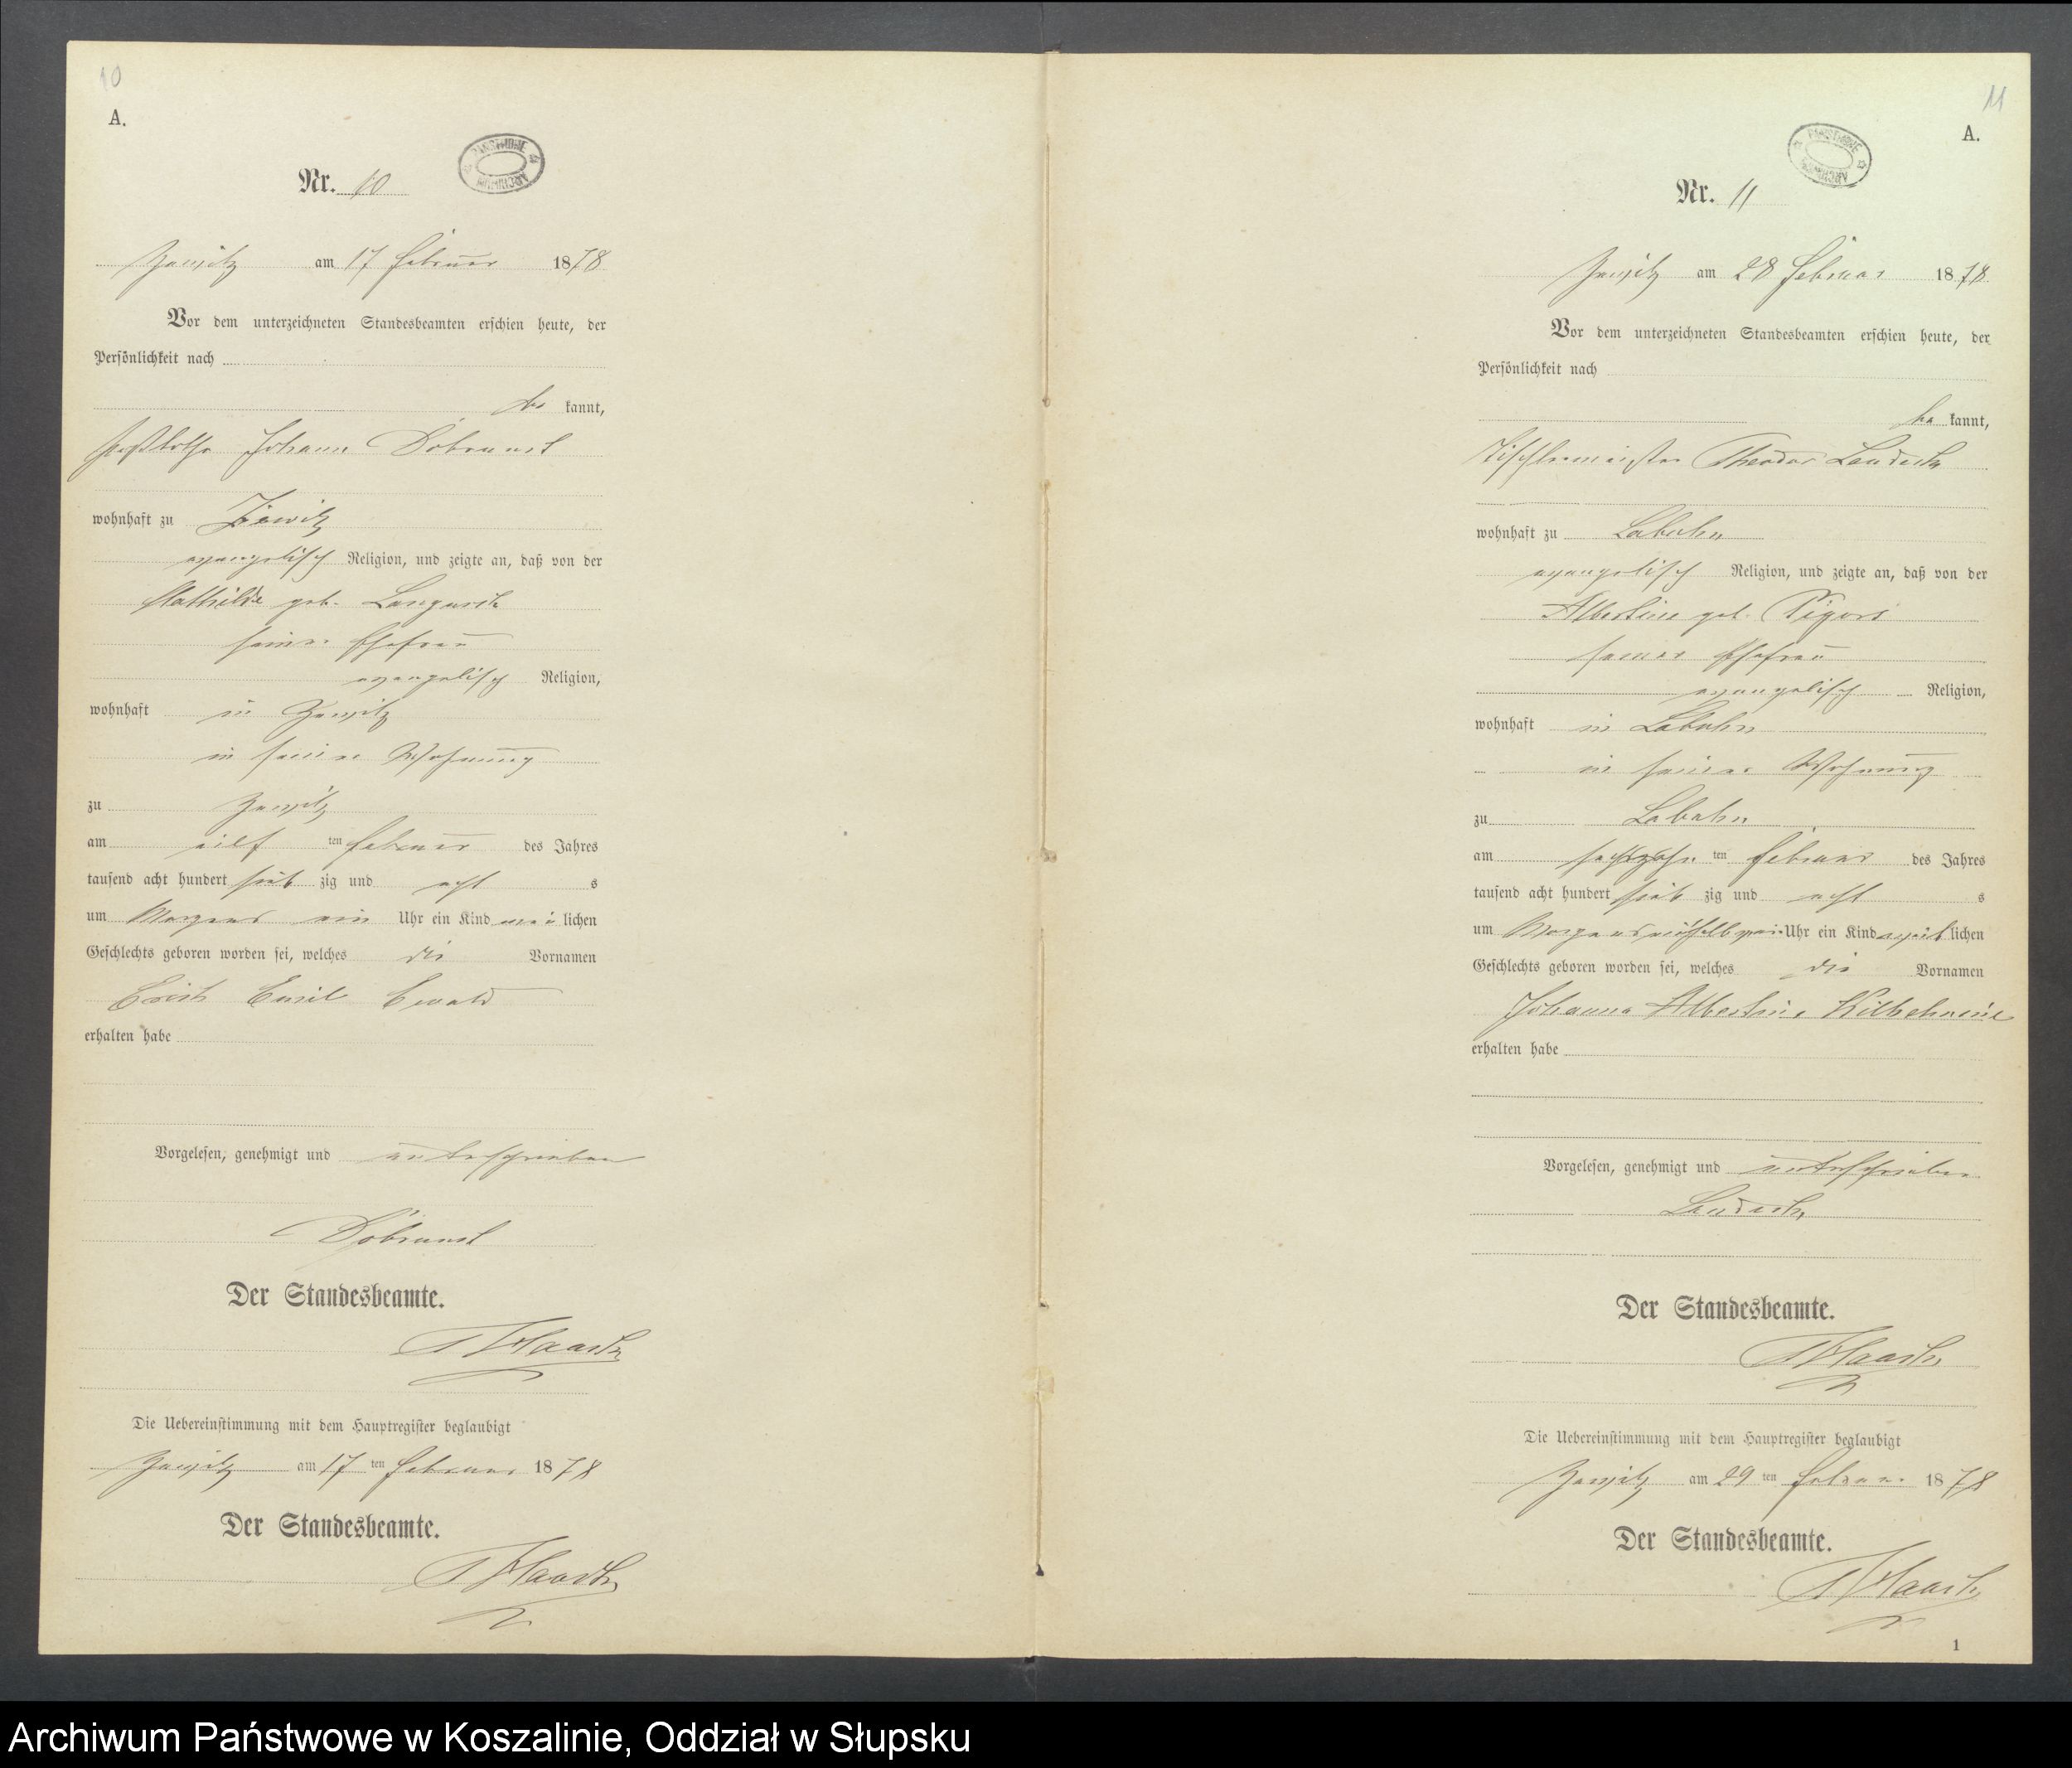 10
A.
Nr. 10
Zewitz am 17 Februar 1878
Vor dem unterzeichneten Standesbeamten erschien heute, der
Persönlichkeit nach
be kannt,
Johann
wohnhaft zu Zewitz
evangelisch Religion, und zeigte an, daß von der
Mathilde geb.
seiner Ehefrau
evangelisch Religion,
wohnhaft in Zewitz
in seiner Wohnung
zu Zewitz
am eilf ten Februar des Jahres
tausend acht hundert sieb zig und acht s
um Morgens ein Uhr ein Kind män lichen
Geschlechts geboren worden sei, welches die Vornamen
Emil Ewald
erhalten habe
Vorgelesen, genehmigt und unterschrieben
Der Standesbeamte.
Die Uebereinstimmung mit dem Hauptregister beglaubigt
Zewitz am 17 ten Februar 1878
Der Standesbeamte.
11
A.
Nr. 11
Zewitz am 28 Februar 1878
Vor dem unterzeichneten Standesbeamten erschien heute, der
Persönlichkeit nach
be kannt,
Tischlermeister Theodor
wohnhaft zu Labehn
evangelisch Religion, und zeigte an, daß von der
Albertine geb. Pigors
seiner Ehefrau
evangelisch Religion,
wohnhaft in Labehn
in seiner Wohnung
zu Labehn
am ten Februar des Jahres
tausend acht hundert sieb zig und acht s
um Morgens Uhr ein Kind weib lichen
Geschlechts geboren worden sei, welches die Vornamen
Johanna Albertine Wilhelmine
erhalten habe
Vorgelesen, genehmigt und unterschrieben
Der Standesbeamte.
Die Uebereinstimmung mit dem Hauptregister beglaubigt
Zewitz am 29 ten Februar 1878
Der Standesbeamte.
1
Archiwum Państwowe w Koszalinie, Oddział w Słupsku